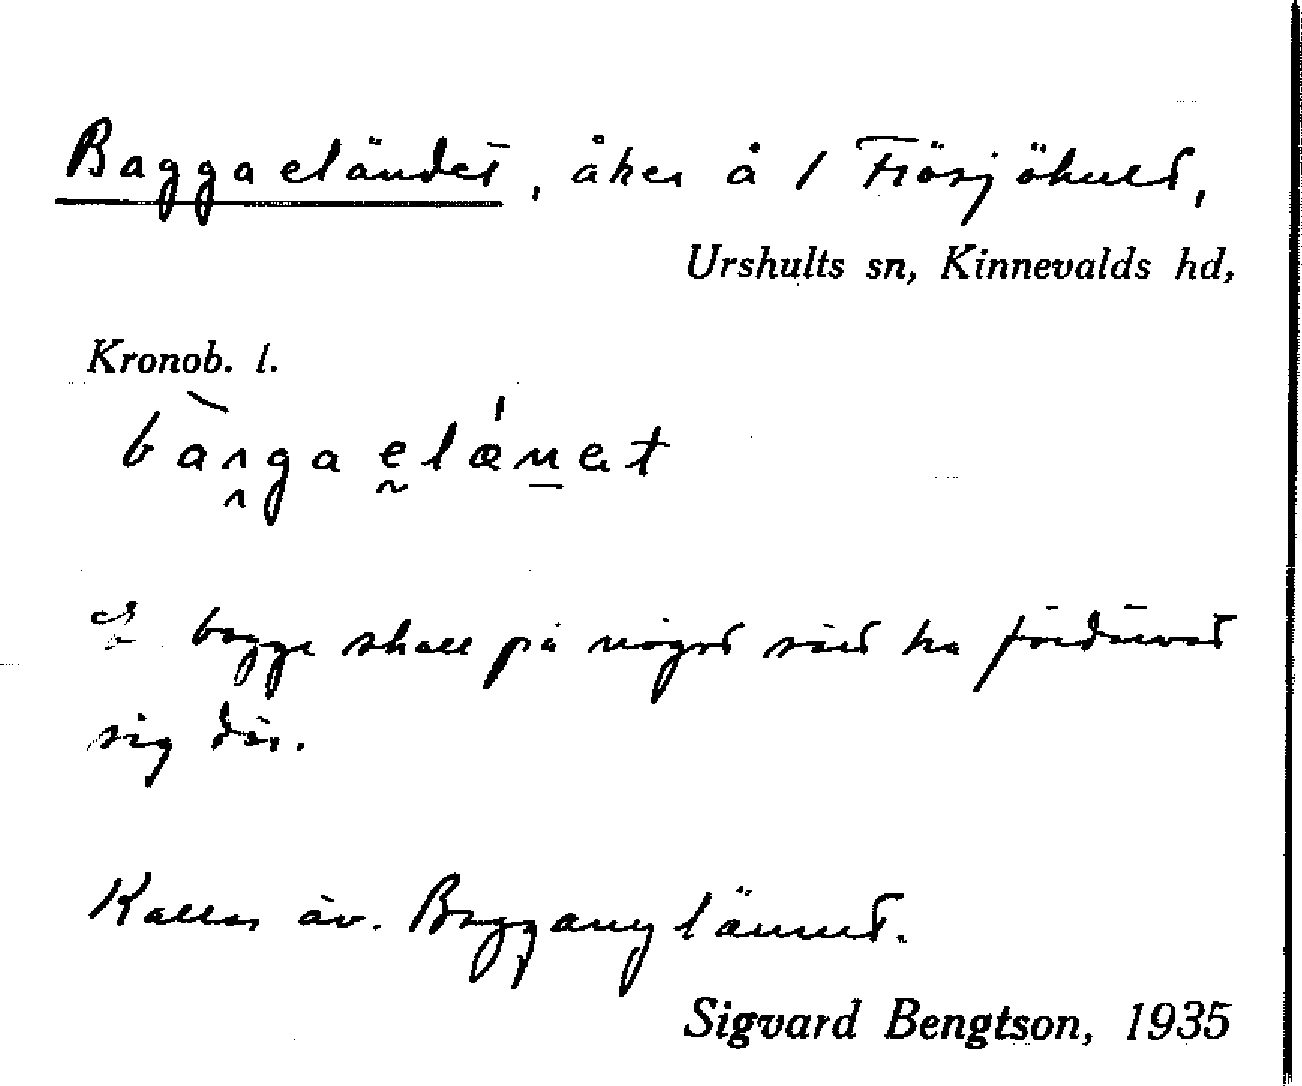 Baggaeländet, åker å 1 Frösjöhult,
Urshults sn, Kinnevalds hd,
Kronob. l.
bagge skall på något sätt ha fördärvat
sig där.
Kallas äv.
Sigvard Bengtson, 1935